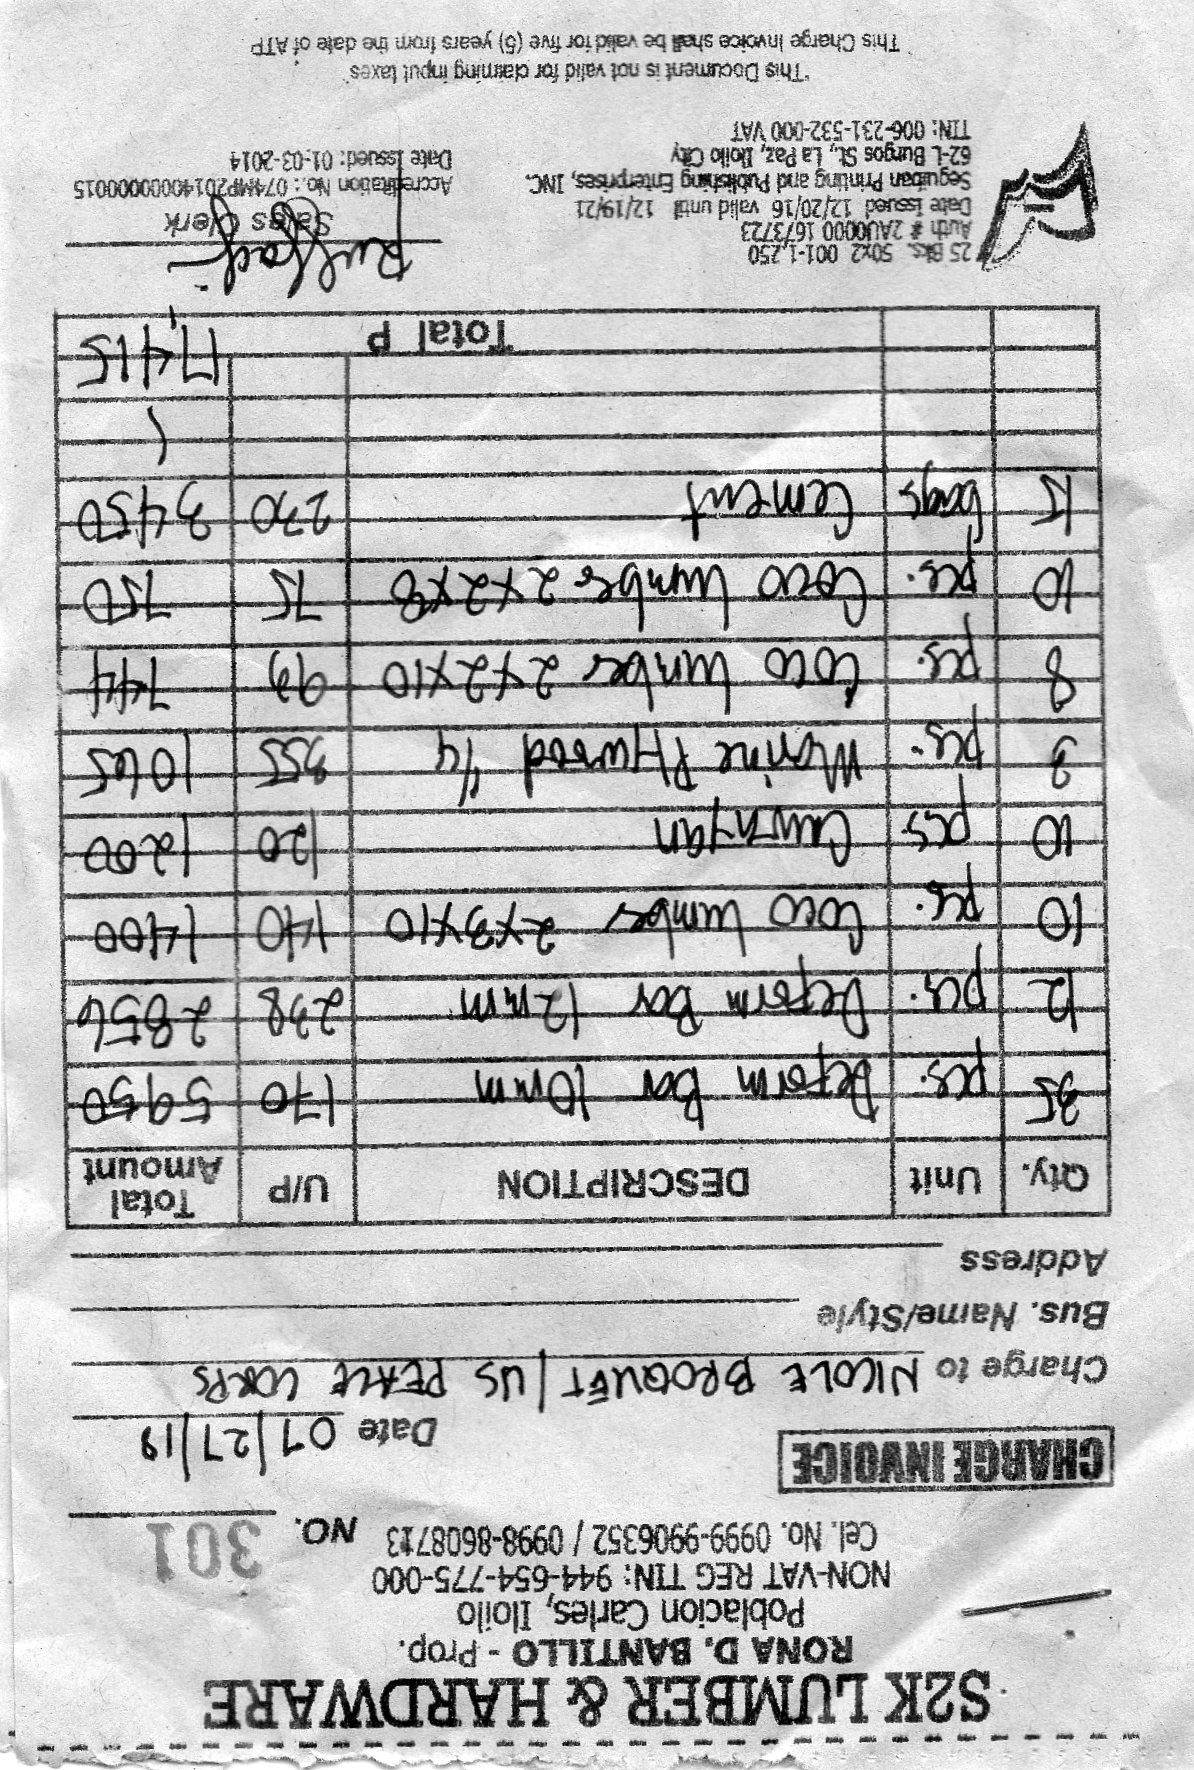 S2K LUMBER & HARDWARE
RONA D. BANTILLO - Prop.
Poblacion Carles, Iloilo
NON-VAT REG TIN: 944-654-775-000
Cel. No. 0999-9906352 / 0998-8608713 NO. 301
CHARGE INVOICE
Date 07/27/19
Charge to NICOLE BROQUET / US PEACE CORPS
Bus. Name/Style
Address
Qty. Unit DESCRIPTION U/P Total Amount
35 pcs. Deform Bar 10mm 170 5950
12 pcs. Deform Bar 12mm 238 2856
10 pcs. Coco lumber 2x3x10 140 1400
10 pcs Cawayan 120 1200
3 pcs. Marine Plywood 1/4 355 1065
8 pcs. Coco lumber 2x2x10 93 744
10 pcs. Coco lumber 2x2x8 75 750
15 bags Cement 230 3450
Total P 17,415
25 Bks. 50x2 001-1,250
Auth # 2AU0000 1673723
Date Issued 12/20/16 valid until 12/19/21
Seguiban Printing and Publishing Enterprises, INC.
62-L Burgos St., La Paz, Iloilo City
TIN: 006-231-532-000 VAT
Sales Clerk
Accreditation No.: 074MP20140000000015
Date Issued: 01-03-2014
"This Document is not valid for claiming input taxes"
This Charge Invoice shall be valid for five (5) years from the date of ATP